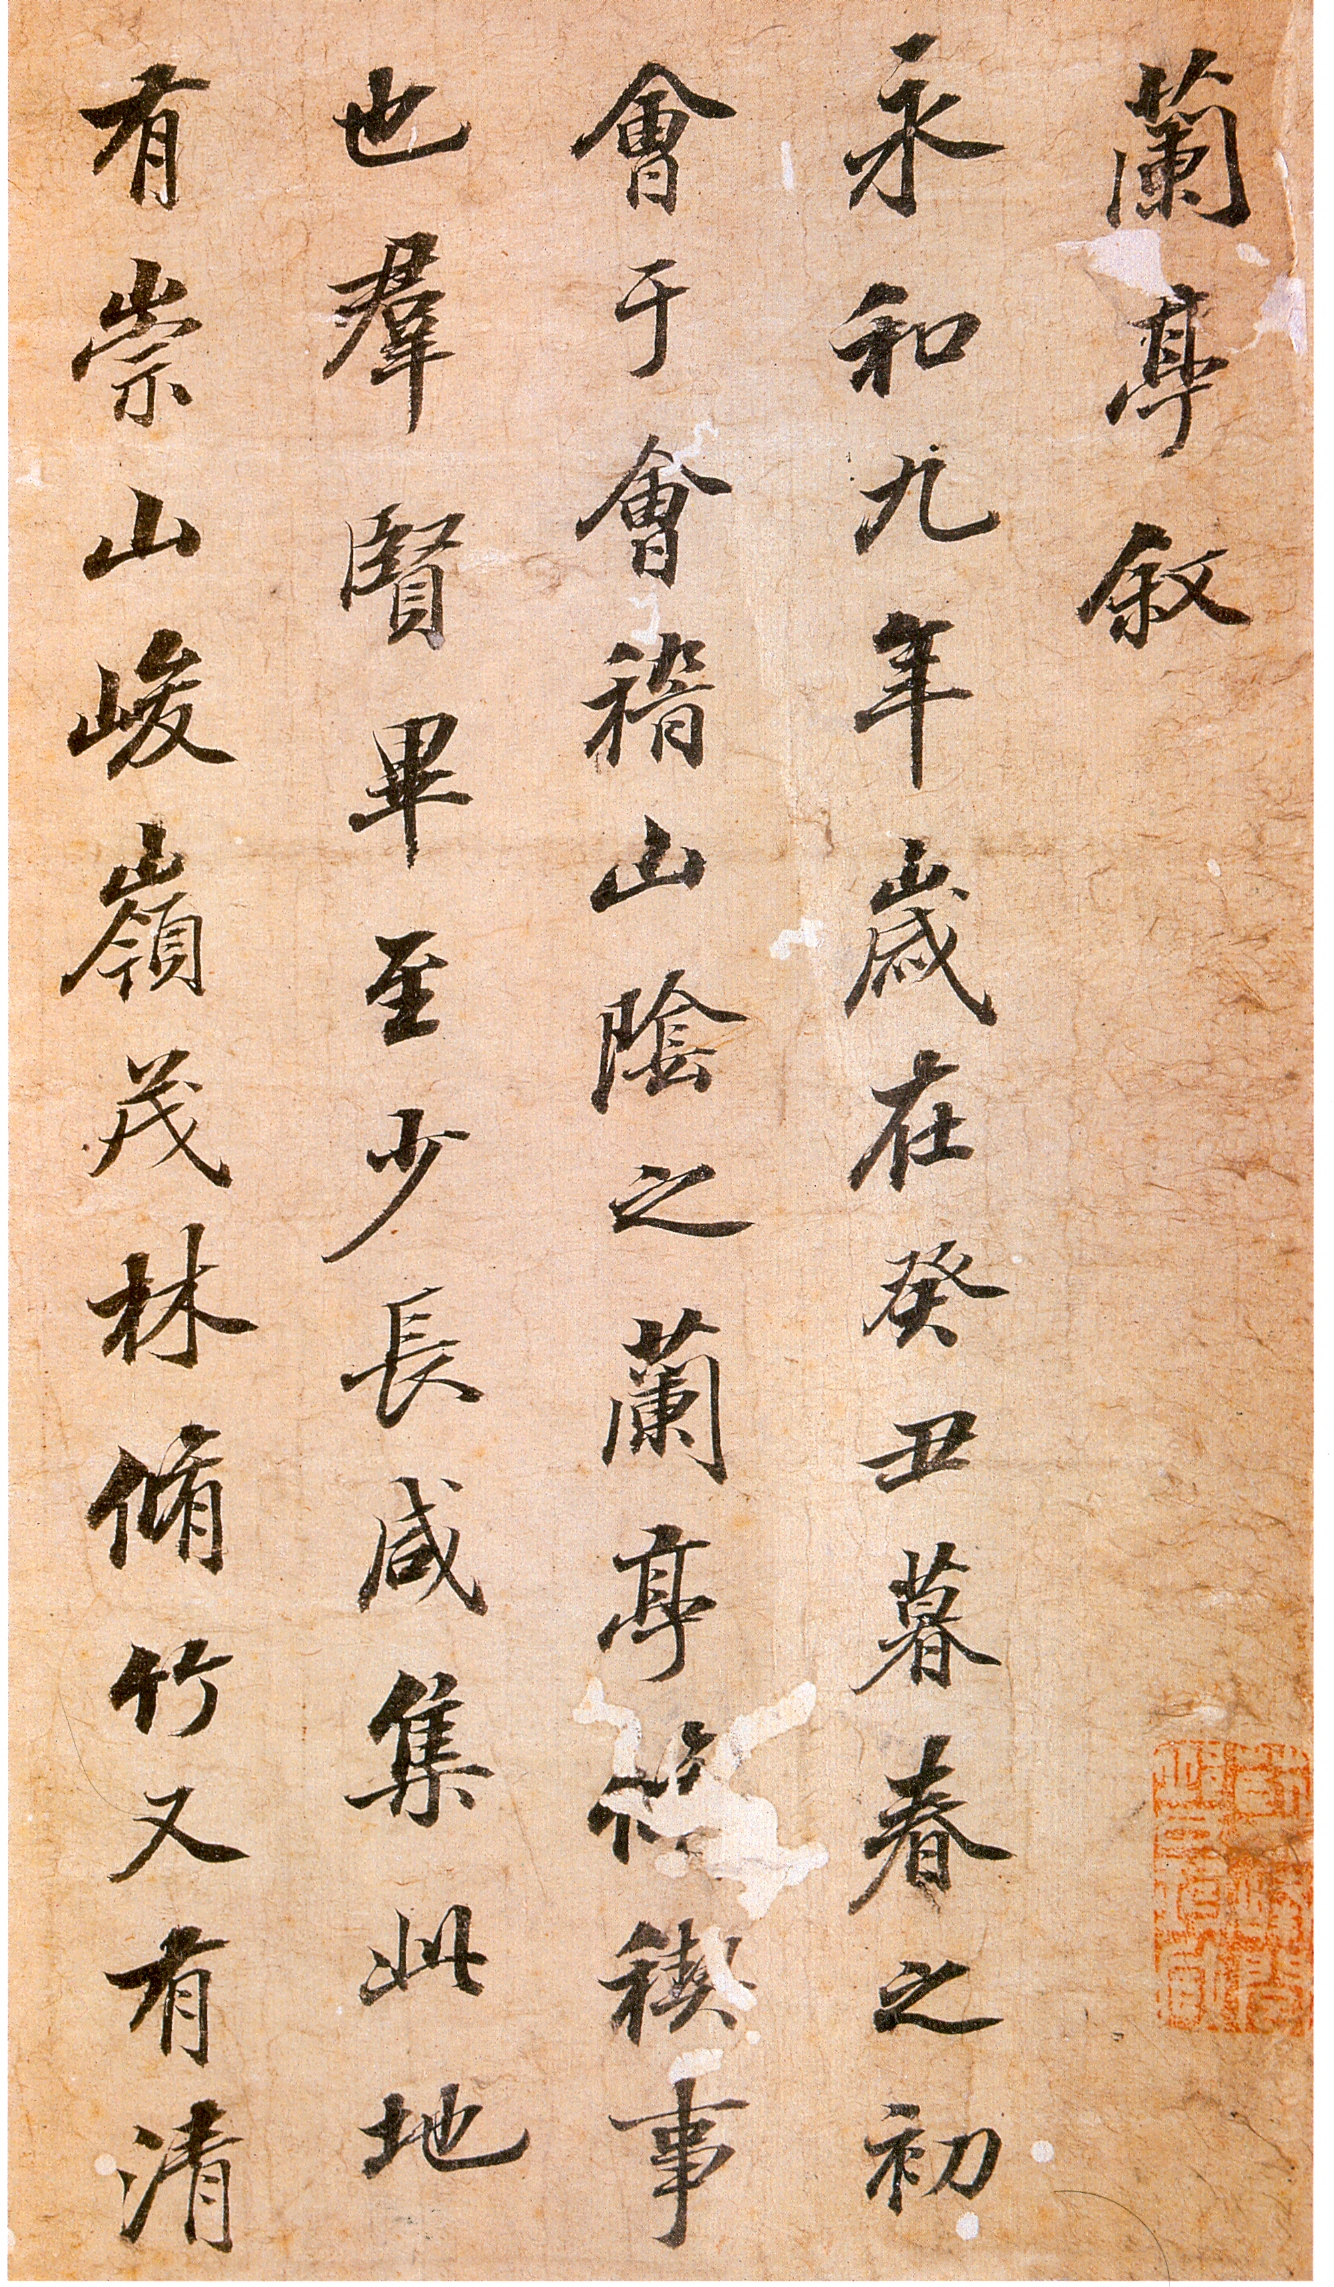 蘭亭敘
永和九年歲在癸丑暮春之初
會于會稽山陰之蘭亭脩禊事
也羣賢畢至少長咸集此地
有崇山峻嶺茂林脩竹又有清